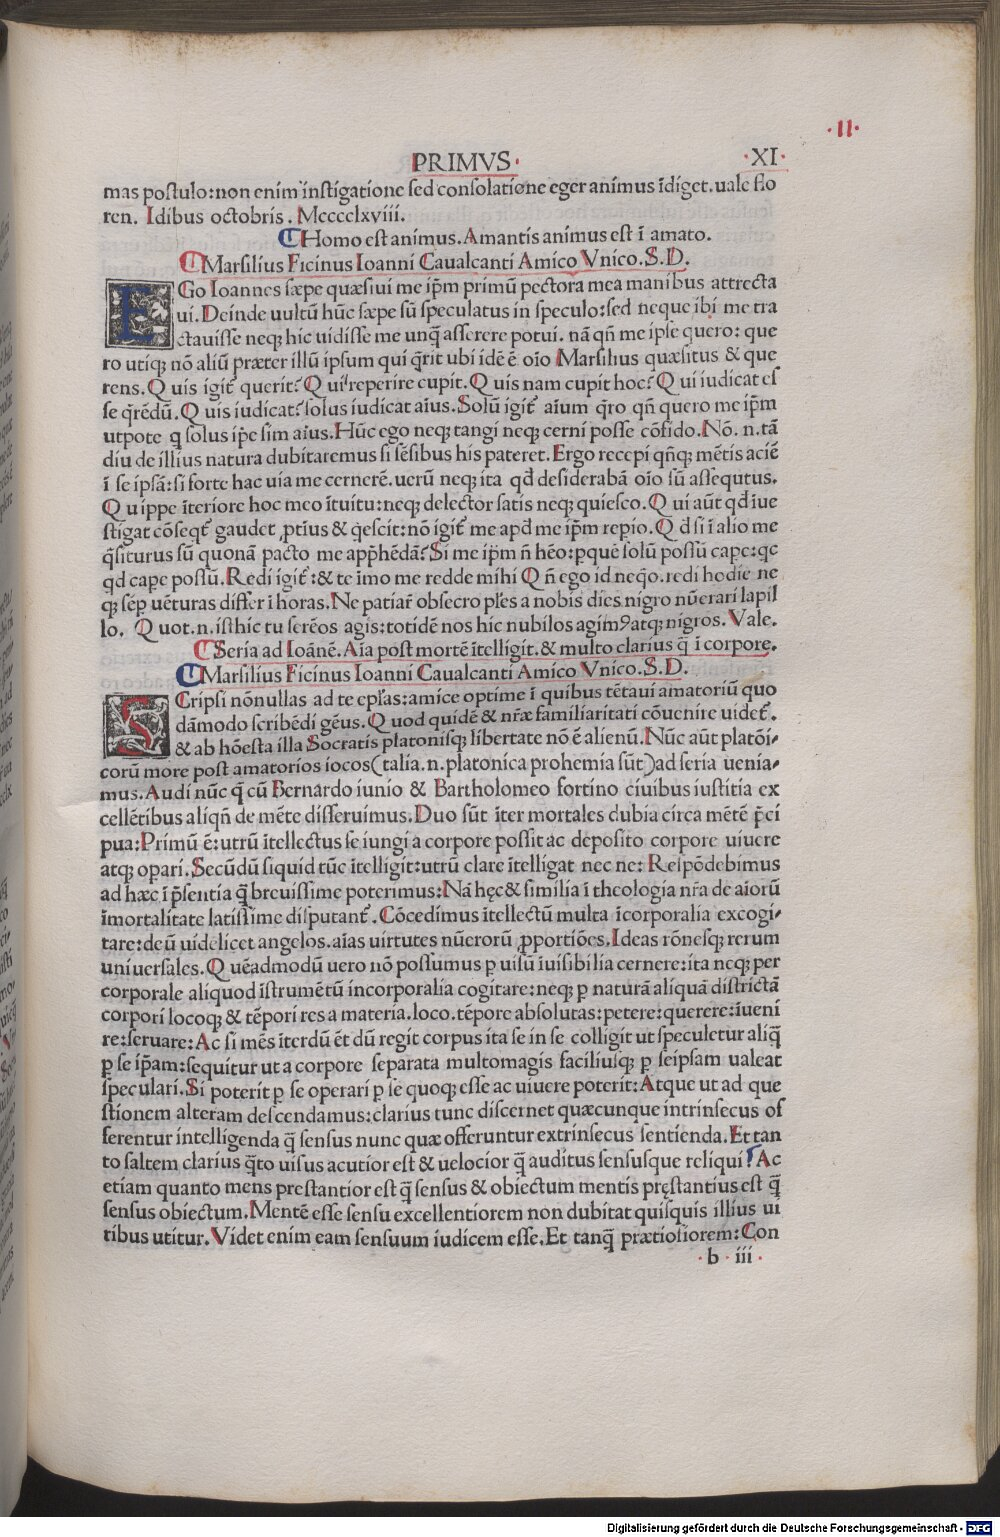 ·II·
PRIMVS·
·XI·
mas postulo:non enim instigatione sed consolatione eger animus īdiget.uale flo
ren. Idibus octobris. Mcccclxviii.
Homo est animus. Amantis animus est ī amato.
Marsilius Ficinus Ioanni Caualcanti Amico Vnico.S.D.
EGo Ioannes sæpe quæsiui me ip̄m primū pectora mea manibus attrecta
ui. Deinde uultū hūc sæpe sū speculatus in speculo:sed neque ibi me tra
ctauisse neqꝫ hic uidisse me unq̄ asserere potui. nā qn̄ me ipse quero: que
ro utiqꝫ nō aliū præter illū ipsum qui q̄rit ubi idē ē oīo Marsilius quæsitus & que
rens. Quis igit̄ querit? Qui reperire cupit. Quis nam cupit hoc? Qui iudicat es
se q̄rēdū. Quis iudicat? solus iudicat aīus. Solū igit̄ aīum q̄ro qn̄ quero me ip̄m
utpote q solus ip̄e sim aīus. Hūc ego neqꝫ tangi neqꝫ cerni posse cōfido. Nō. n. tā
diu de illius natura dubitaremus si sēsibus his pateret. Ergo recepi qn̄qꝫ mētis aciē
ī se ipsā: si forte hac uia me cernerē. uerū neqꝫ ita qd̄ desiderabā oīo sū assequtus.
Quippe īteriore hoc meo ītuitu: neqꝫ delector satis neqꝫ quiesco. Qui aūt qd īue
stigat cōseqt̄ gaudet ꝓtīus & q̄escit: nō igit̄ me apd me ip̄m repio. Qd si ī alio me
q̄siturus sū quonā pacto me app̄hēdā? Si me ip̄m n̄ hēo: pque solū possū cape: qc
qd cape possū. Redi igit̄: & te īmo me redde mihi Qn̄ ego id neq̄o. redi hodie ne
qꝫ sep uēturas differ ī horas. Ne patiar̄ obsecro pl̄es a nobis dies nigro nūerari lapil
lo. Quot. n. isthic tu serēos agis: totidē nos hic nubilos agimꝰ atqꝫ nigros. Vale.
Seria ad Ioānē. Aīa post mortē ītelligit. & multo clarius q̄ ī corpore.
Marsilius Ficinus Ioanni Caualcanti Amico Vnico.S.D.
SCripsi nōnullas ad te ep̄las: amice optime ī quibus tētaui amatoriū quo
dāmodo scribēdi gēus. Quod quidē & nr̄æ familiaritati cōuenire uidet̄.
& ab hōesta illa Socratis platonisqꝫ libertate nō ē alienū. Nūc aūt platōi-
corū more post amatorios iocos (talia. n. platonica prohemia sūt) ad seria uenia-
mus. Audi nūc q̄ cū Bernardo iunio & Bartholomeo fortino ciuibus iustitia ex
cellētibus aliqn̄ de mēte disseruimus. Duo sūt īter mortales dubia circa mētē p̄ci
pua: Primū ē: utrū ītellectus se iungi a corpore possit ac deposito corpore uiuere
atqꝫ opari. Secūdū siquid tūc ītelligit: utrū clare ītelligat nec ne: Respōdebimus
ad hæc ī p̄sentia q̄ breuissime poterimus: Nā hęc & similia ī theologia nr̄a de aīorū
īmortalitate latissime disputant̄. Cōcedimus ītellectū multa īcorporalia excogi-
tare: deū uidelicet angelos. aīas uirtutes nūerorū ꝓportiōes. Ideas rōnesqꝫ rerum
uniuersales. Quēadmodū uero nō possumus p uisū īuisibilia cernere: ita neqꝫ per
corporale aliquod īstrumētū incorporalia cogitare: neqꝫ p naturā aliquā districtā
corpori locoqꝫ & tēpori res a materia. loco. tēpore absolutas: petere: querere: īueni
re: seruare: Ac si mēs īterdū ēt dū regit corpus ita se in se colligit ut speculetur aliq̄
p se ip̄am: sequitur ut a corpore separata multomagis faciliusqꝫ p seipsam ualeat
speculari. Si poterit p se operari p se quoqꝫ esse ac uiuere poterit: Atque ut ad que
stionem alteram descendamus: clarius tunc discernet quæcunque intrinsecus of
ferentur intelligenda q̄ sensus nunc quæ offeruntur extrinsecus sentienda. Et tan
to saltem clarius q̄to uisus acutior est & uelocior q̄ auditus sensusque reliqui? Ac
etiam quanto mens prestantior est q̄ sensus & obiectum mentis pręstantius est q̄
sensus obiectum. Mentē esse sensu excellentiorem non dubitat quisquis illius ui
ribus utitur. Videt enim eam sensuum iudicem esse. Et tanq̄ prætiosiorem: Con
·b iii·
Digitalisierung gefördert durch die Deutsche Forschungsgemeinschaft - DFG